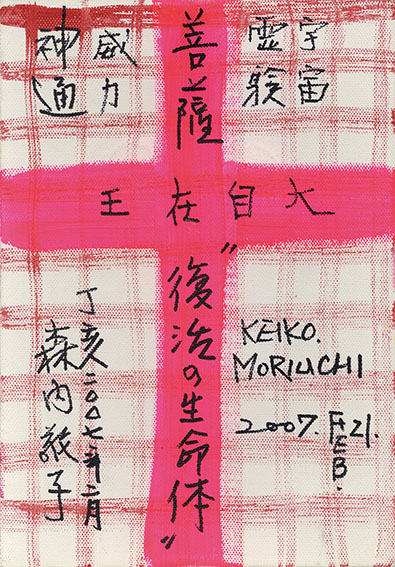 宇宙
霊験
菩薩
威力
神通
大自在王
"復活の生命体"
KEIKO.
MORIUCHI
2007. FEB. 21.
丁亥二〇〇七年二月
森内敬子